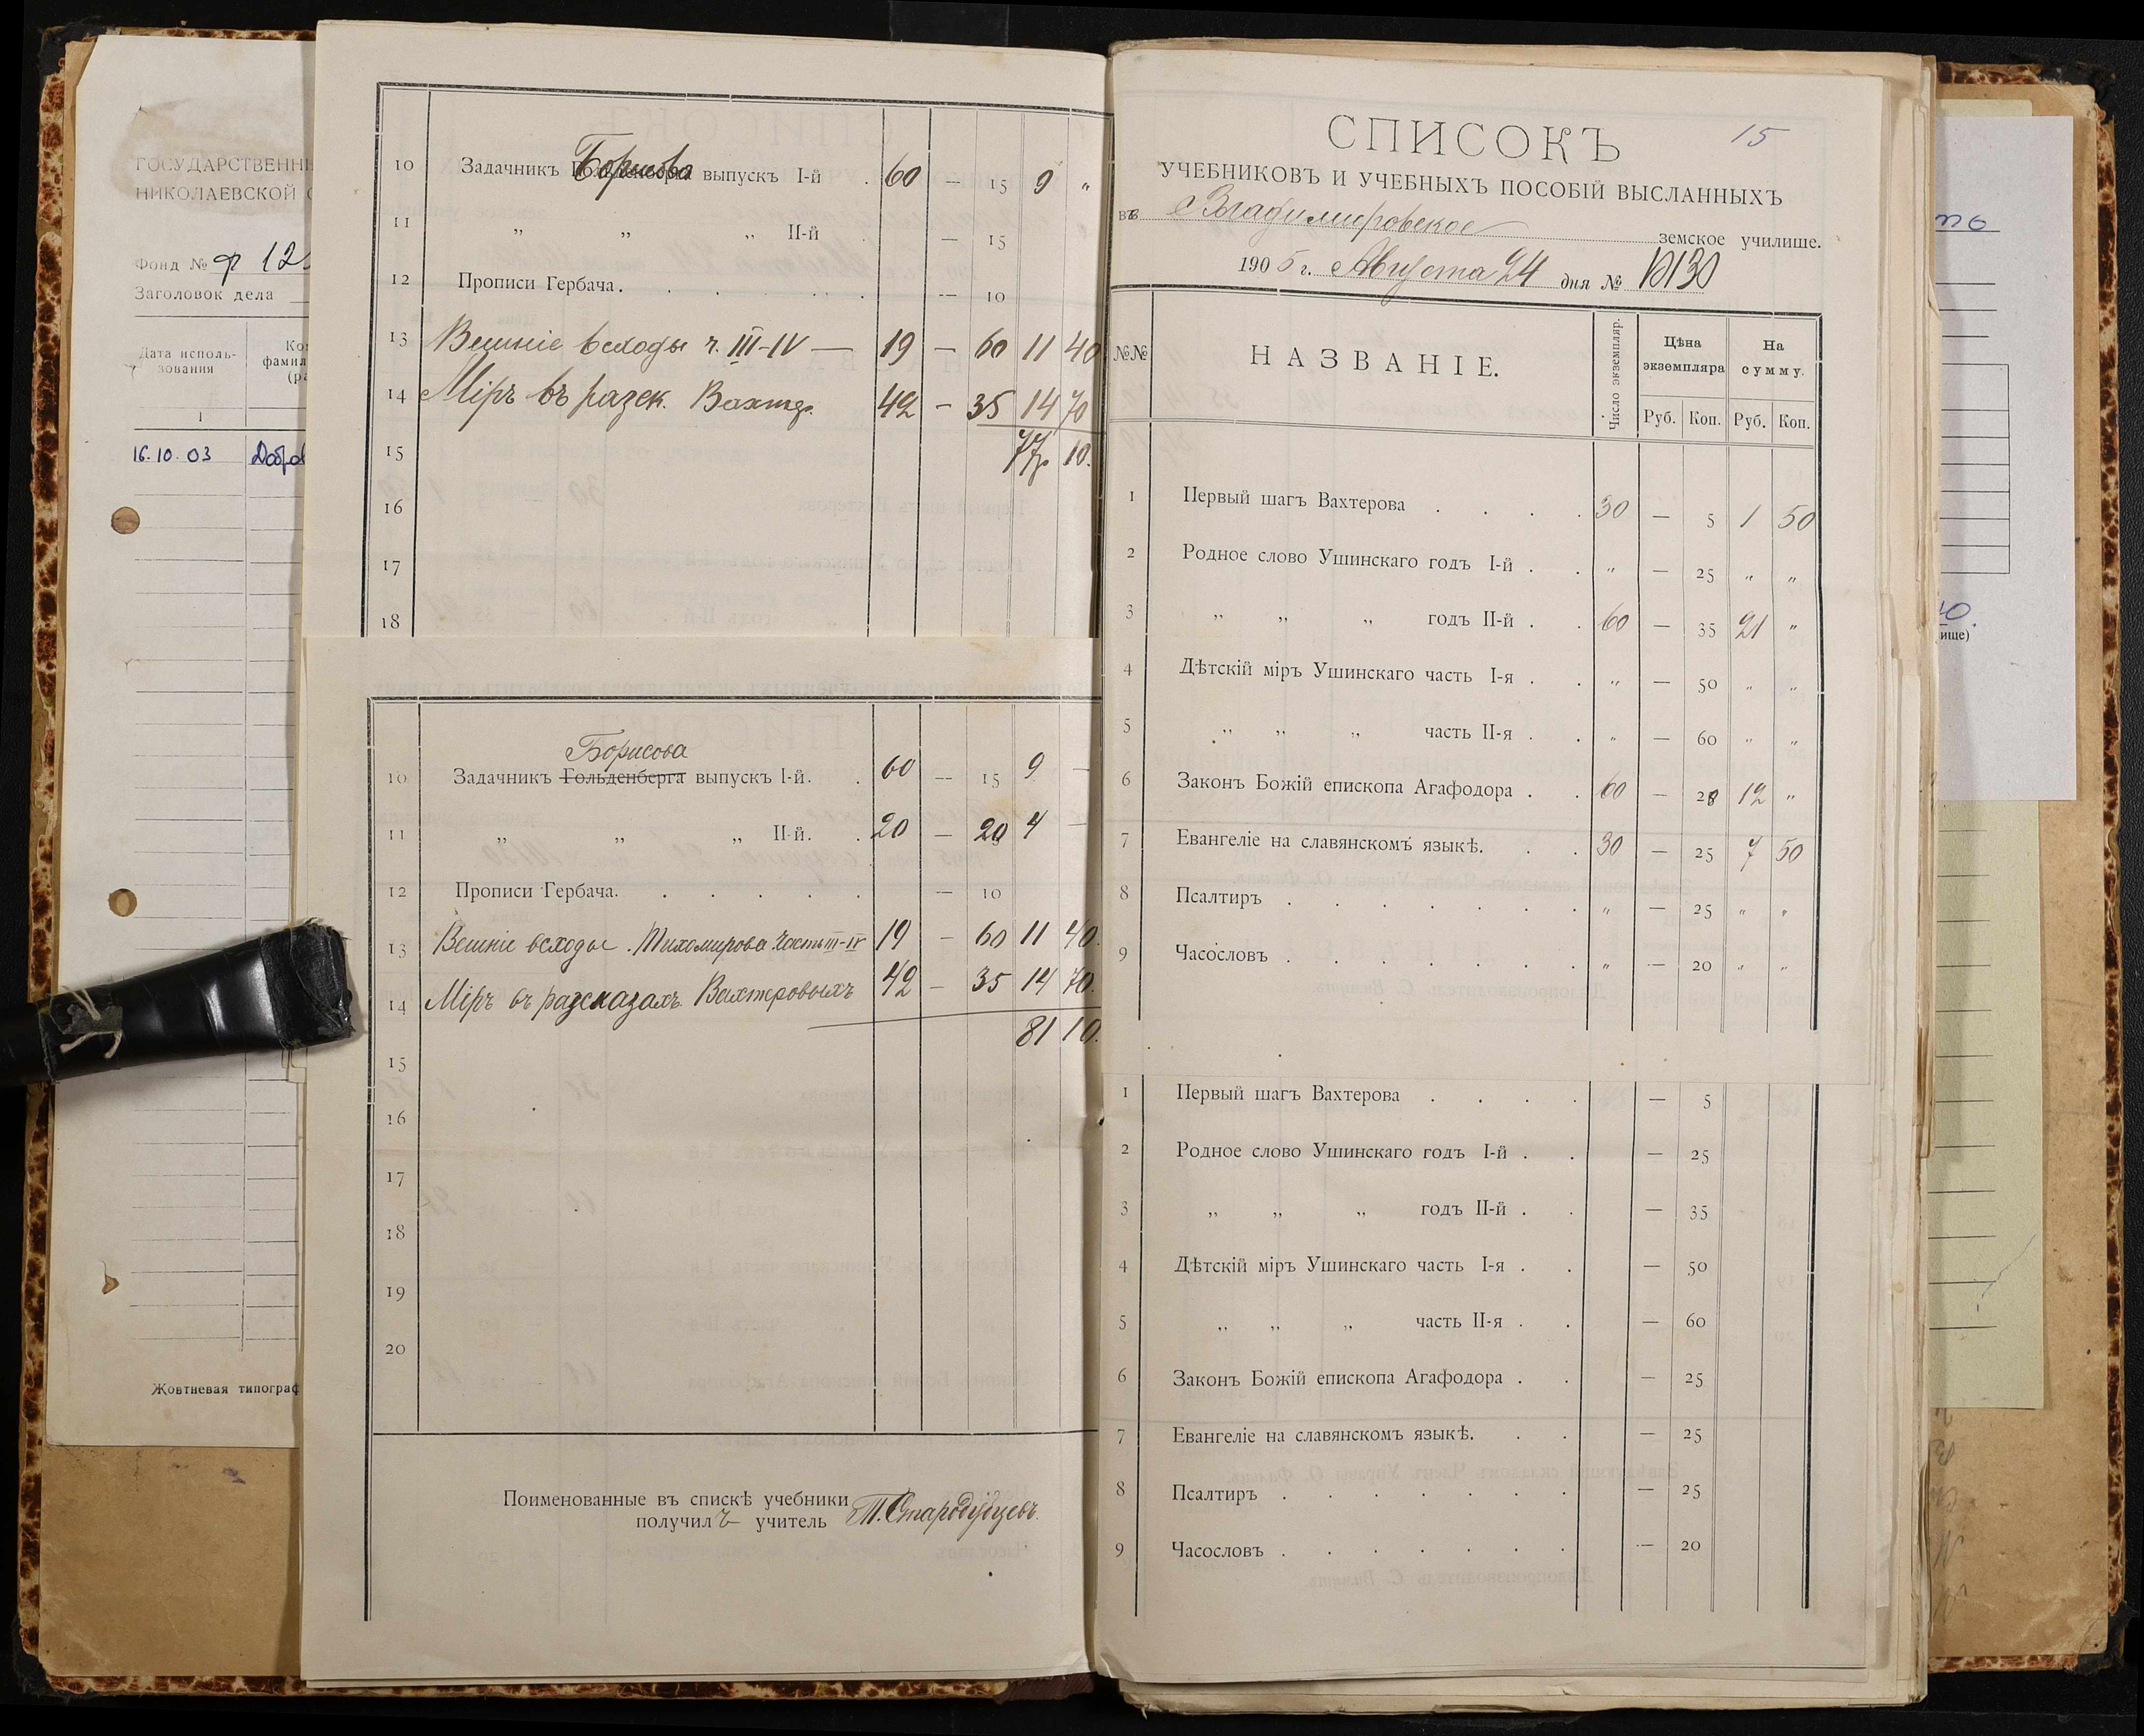 ГОСУДАРСТВЕНН
НИКОЛАЕВСКОЙ
Фонд № Ф 12
Заголовок дела
Дата исполь-
зования
1
16.10.03 Добров
Жовтневая типограф
10 Задачникъ Борисова выпускъ I-й . 60 — 15 9 „
11 „ „ „ II-й — 15
12 Прописи Гербача. . . . . . — 10
13 Вешніе всходы ч. III-IV — 19 — 60 11 40
14 Міръ въ разск. Вахтер. 42 — 35 14 70
15 77р 10.
16
17
18
Борисова
10 Задачникъ Гольденберга выпускъ I-й. . 60 — 15 9 —
11 „ „ „ II-й. . 20 — 20 4 —
12 Прописи Гербача. . . . . . — 10
13 Вешніе всходы. Тихомирова часть III-IV 19 — 60 11 40.
14 Міръ въ разсказахъ Вахтеровыхъ 42 — 35 14 70.
81 10.
15
16
17
18
19
20
Поименованные въ спискѣ учебники
получилъ учитель Т. Стародубцевъ.
15
СПИСОКЪ
УЧЕБНИКОВЪ И УЧЕБНЫХЪ ПОСОБІЙ ВЫСЛАННЫХЪ
въ Владимировское земское училище.
1905 г. Августа 24 дня № 10130
№№ НАЗВАНІЕ. Число экземпляр. Цѣна экземпляра На сумму.
Руб. Коп. Руб. Коп.
1 Первый шагъ Вахтерова . . . . 30 — 5 1 50
2 Родное слово Ушинскаго годъ I-й . . „ — 25 „ „
3 „ „ „ годъ II-й . . 60 — 35 21 „
4 Дѣтскій міръ Ушинскаго часть I-я . . „ — 50 „ „
5 „ „ „ часть II-я . . „ — 60 „ „
6 Законъ Божій епископа Агафодора . . 60 — 20 12 „
7 Евангеліе на славянскомъ языкѣ. . . 30 — 25 7 50
8 Псалтиръ . . . . . . . „ — 25 „ „
9 Часословъ . . . . . . . „ — 20 „ „
1 Первый шагъ Вахтерова . . . . — 5
2 Родное слово Ушинскаго годъ I-й . . — 25
3 „ „ „ годъ II-й . . — 35
4 Дѣтскій міръ Ушинскаго часть I-я . . — 50
5 „ „ „ часть II-я . . — 60
6 Законъ Божій епископа Агафодора . . — 25
7 Евангеліе на славянскомъ языкѣ. . . — 25
8 Псалтиръ . . . . . . . — 25
9 Часословъ . . . . . . . — 20
ище)